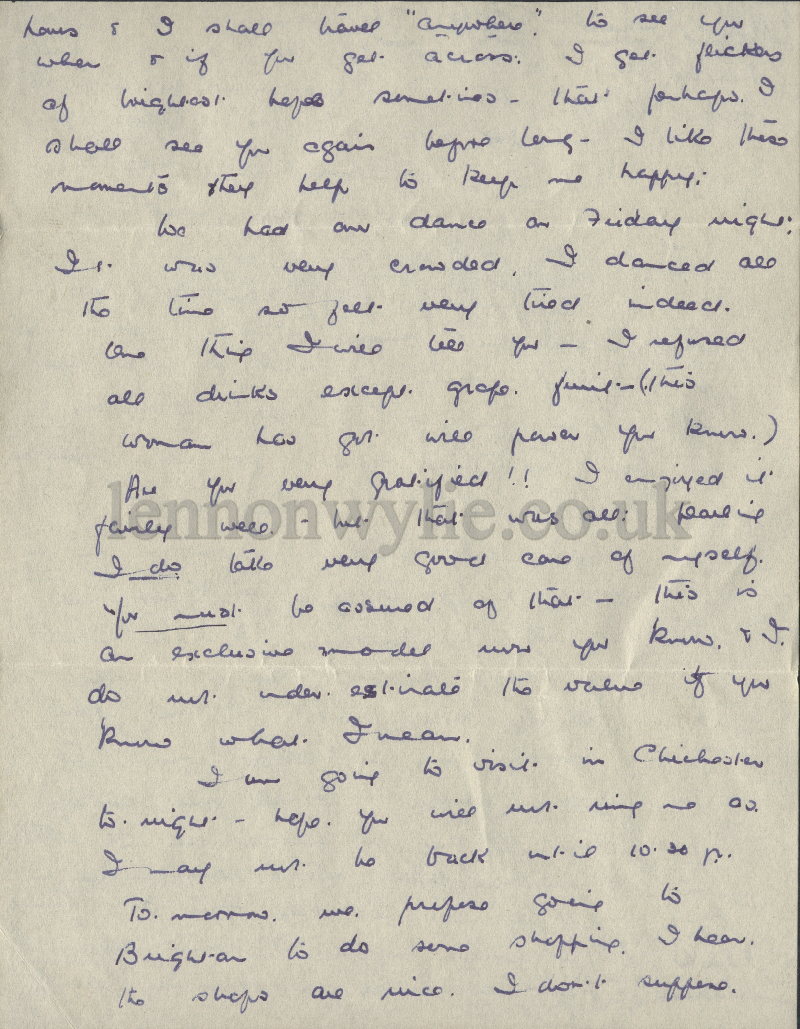 hours & I shall travel "anywhere". to see you
when & if you get across. I get flickers
of brightest hopes sometimes - that perhaps. I
shall see you again before long - I like these
moments they help to keep me happy.
We had our dance on Friday night.
It was very crowded. I danced all
the time so felt very tired indeed.
One thing I will tell you - I refused
all drinks except grape fruit - (this
woman has got will power you know.)
Are you very gratified!! I enjoyed it
fairly well - but that was all: Darling
I do take very good care of myself.
You must be assured of that - this is
an exclusive model now you know. & I.
do not under estimate the value if you
know what I mean.
I am going to visit in Chichester
to-night - hope you will not ring me as
I may not be back until 10.30 p.
To-morrow. we propose going to
Brighton to do some shopping. I hear.
the shops are nice. I don't suppose.
lennonwylie.co.uk